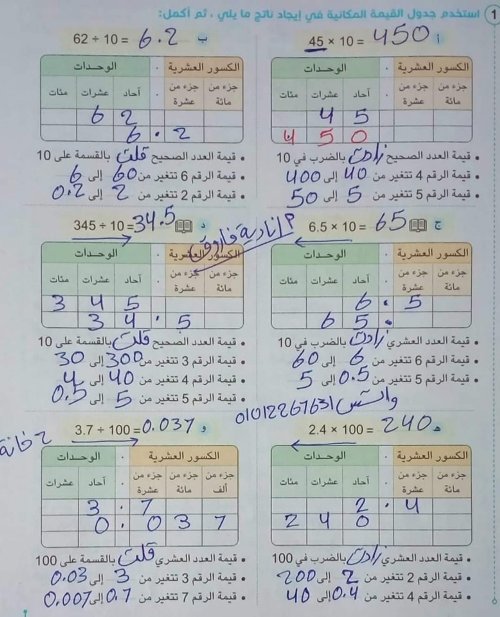 1 استخدم جدول القيمة المكانية في إيجاد ناتج ما يلي ، ثم أكمل:
أ 45 × 10 = 450
الكسور العشرية . الوحدات
جزء من مائة جزء من عشرة . آحاد عشرات مئات
4 5
4 5 0
• قيمة العدد الصحيح زادت بالضرب في 10
• قيمة الرقم 4 تتغير من 40 إلى 400
• قيمة الرقم 5 تتغير من 5 إلى 50
ب 62 ÷ 10 = 6.2
الكسور العشرية . الوحدات
جزء من مائة جزء من عشرة . آحاد عشرات مئات
6 2
6 . 2
• قيمة العدد الصحيح قلت بالقسمة على 10
• قيمة الرقم 6 تتغير من 60 إلى 6
• قيمة الرقم 2 تتغير من 2 إلى 0.2
ج 6.5 × 10 = 65
الكسور العشرية . الوحدات
جزء من مائة جزء من عشرة . آحاد عشرات مئات
6 . 5
6 5 .
• قيمة العدد العشري زادت بالضرب في 10
• قيمة الرقم 6 تتغير من 6 إلى 60
• قيمة الرقم 5 تتغير من 0.5 إلى 5
م / نادية فاروق
د 345 ÷ 10 = 34.5
الكسور العشرية . الوحدات
جزء من مائة جزء من عشرة . آحاد عشرات مئات
3 4 5
3 4 . 5
• قيمة العدد الصحيح قلت بالقسمة على 10
• قيمة الرقم 3 تتغير من 300 إلى 30
• قيمة الرقم 4 تتغير من 40 إلى 4
• قيمة الرقم 5 تتغير من 5 إلى 0.5
واتس 01012267631
هـ 2.4 × 100 = 240
الكسور العشرية . الوحدات
جزء من مائة جزء من عشرة . آحاد عشرات مئات
2 . 4
2 4 0
• قيمة العدد العشري زادت بالضرب في 100
• قيمة الرقم 2 تتغير من 2 إلى 200
• قيمة الرقم 4 تتغير من 0.4 إلى 40
و 3.7 ÷ 100 = 0.037
خانة
الكسور العشرية . الوحدات
جزء من ألف جزء من مائة جزء من عشرة . آحاد عشرات
3 . 7
0 . 0 3 7
• قيمة العدد العشري قلت بالقسمة على 100
• قيمة الرقم 3 تتغير من 3 إلى 0.03
• قيمة الرقم 7 تتغير من 0.7 إلى 0.007